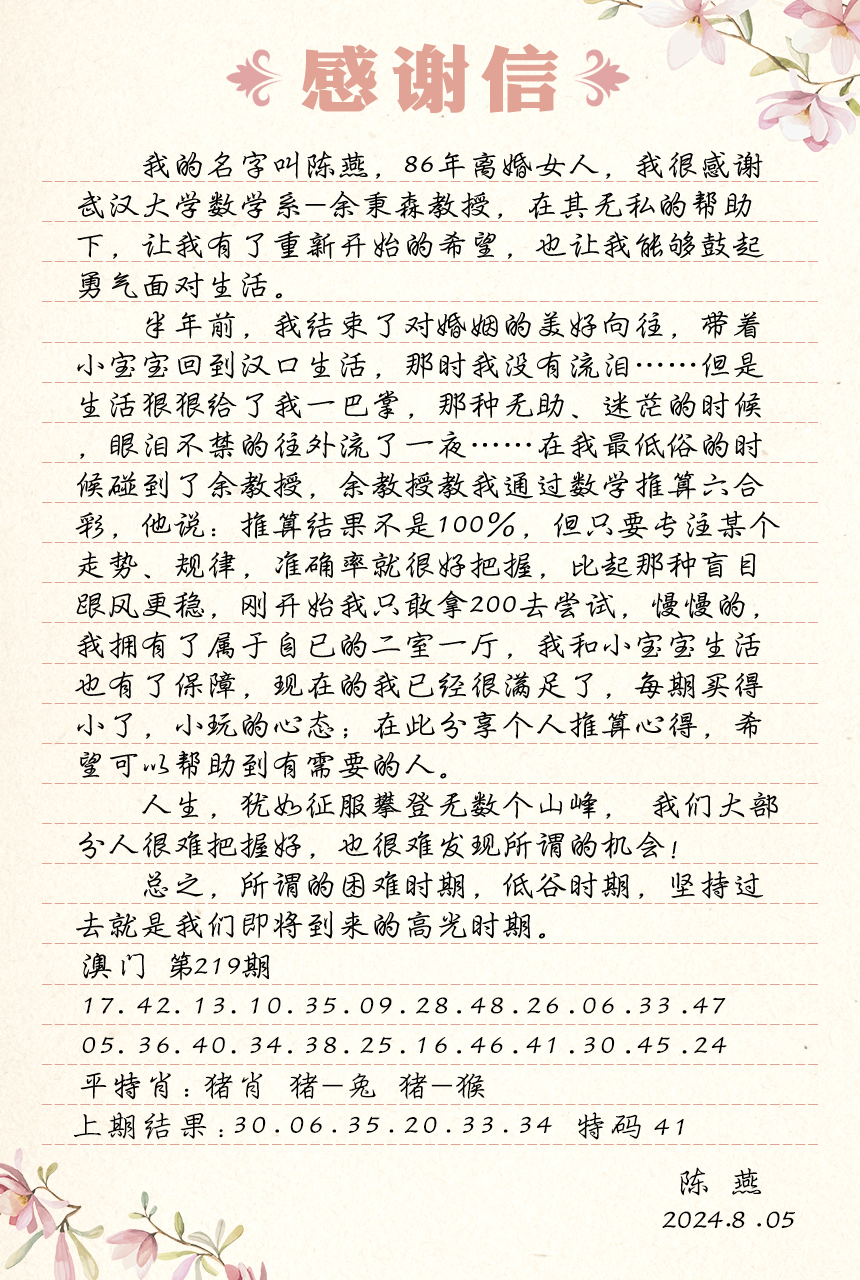 感谢信
我的名字叫陈燕，86年离婚女人，我很感谢
武汉大学数学系—余秉森教授，在其无私的帮助
下，让我有了重新开始的希望，也让我能够鼓起
勇气面对生活。
半年前，我结束了对婚姻的美好向往，带着
小宝宝回到汉口生活，那时我没有流泪……但是
生活狠狠给了我一巴掌，那种无助、迷茫的时候
，眼泪不禁的往外流了一夜……在我最低俗的时
候碰到了余教授，余教授教我通过数学推算六合
彩，他说：推算结果不是100%，但只要专注某个
走势、规律，准确率就很好把握，比起那种盲目
跟风更稳，刚开始我只敢拿200去尝试，慢慢的，
我拥有了属于自已的二室一厅，我和小宝宝生活
也有了保障，现在的我已经很满足了，每期买得
小了，小玩的心态；在此分享个人推算心得，希
望可以帮助到有需要的人。
人生，犹如征服攀登无数个山峰， 我们大部
分人很难把握好，也很难发现所谓的机会！
总之，所谓的困难时期，低谷时期，坚持过
去就是我们即将到来的高光时期。
澳门 第219期
17.42.13.10.35.09.28.48.26.06.33.47
05.36.40.34.38.25.16.46.41.30.45.24
平特肖：猪肖 猪—兔 猪—猴
上期结果：30.06.35.20.33.34 特码 41
陈 燕
2024.8.05